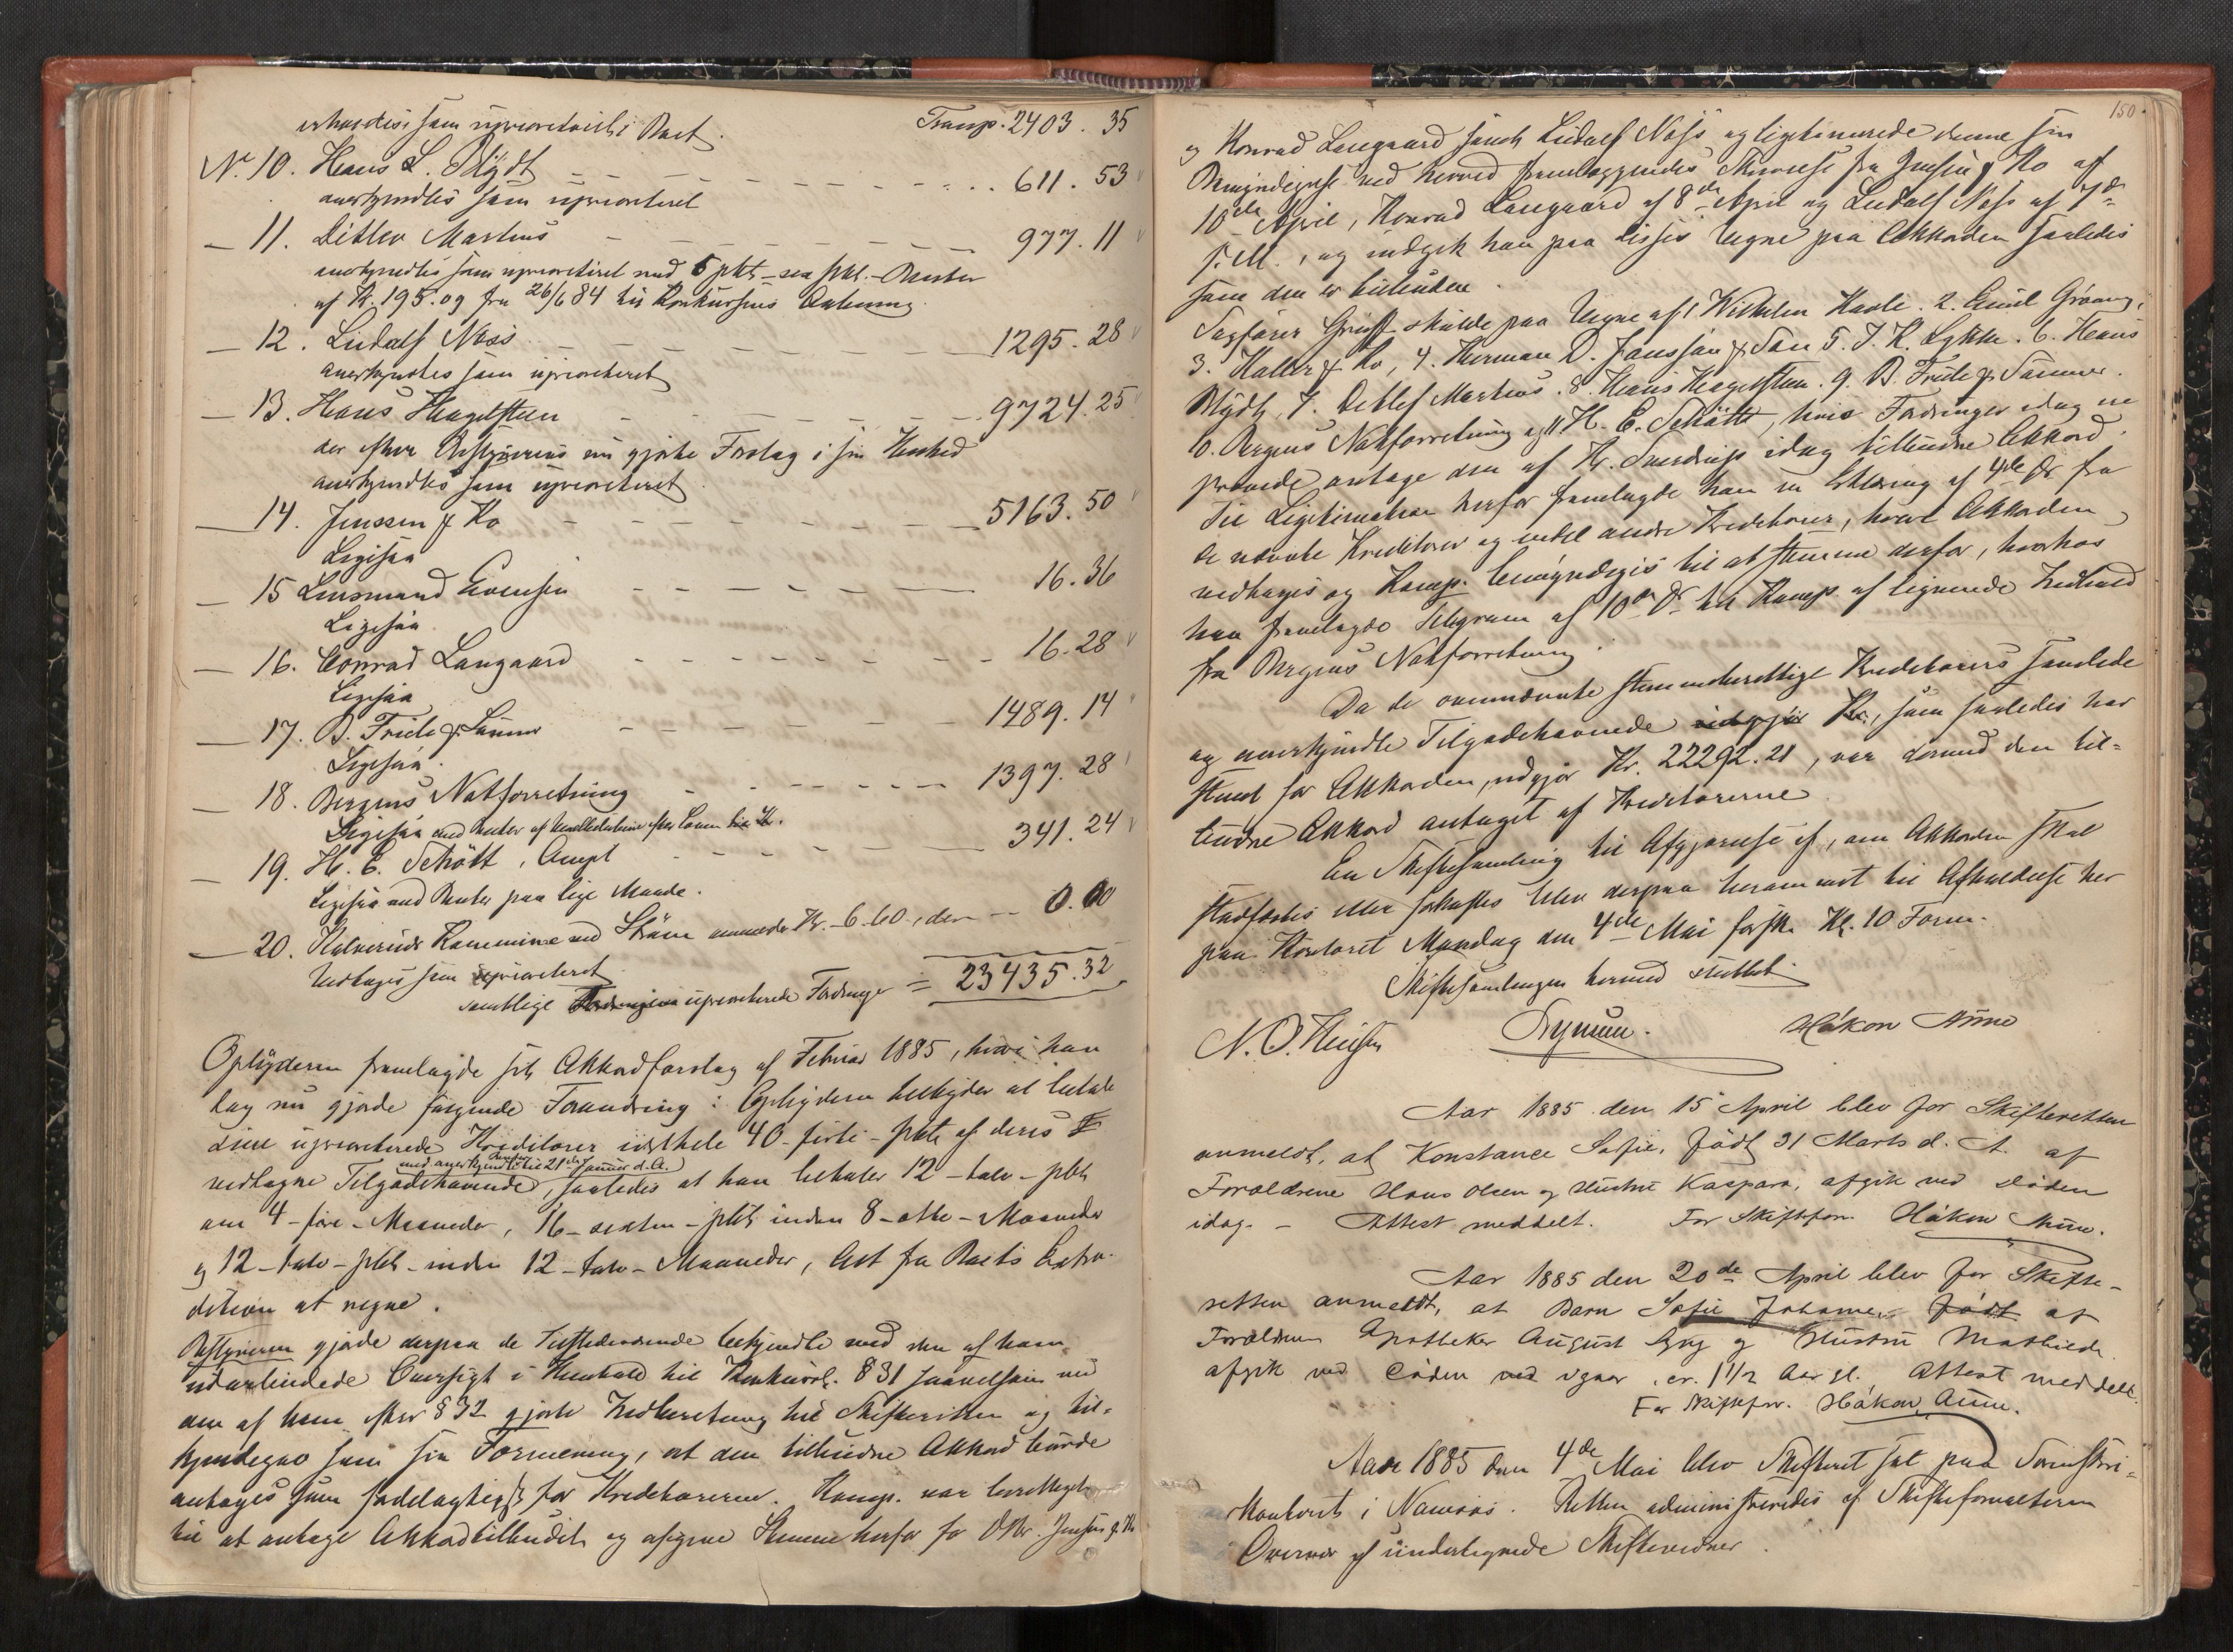 som uprioriteret i Transp. 2403. 35
No. 10. Hans L. Blydt 611. 53
anerkjendtes som uprioriteret
11. Ditlev Martens 977. 11
anerkjendtes som uprioriteret med 6 pkt - sex pkt. - Renter
af Kr. 195.09 fra 26/6 84 til Konkursens Aabning
12. Ludolf Næss 1295. 28
anerkjendtes som uprioriteret
13. Hans Hagelsteen 9724. 25
der efter Bestyrerens nu gjorte Forslag i sin Helhed
anerkjendtes som uprioriteret
14. Jenssen & Ko 5163. 50
Ligesaa
15 Lensmand Evensen 16. 36
Ligesaa
16. Conrad Langaard 16. 28
Ligesaa
17. B. Friele & Sønner 1489. 14
Ligesaa
18. Bergens Notforretning 1397. 28
Ligesaa med Renter af
19. H. E. Schøtt, 341. 24
Ligesaa med Renter paa lige Maade.
20. Kommune ved Strøm anmeldte Kr. 6.60, den 0.00
Vedtages som uprioriteret
samtlige uprioriterede Fordringer = 23435. 32
Opbyderen fremlagde sit Akkordforslag af Februar 1885, hvori han
dag nu gjorde følgende Forandring: Opbyderen tilbyder at betale
sine uprioriterede Kreditorer idethele 40 - firti - pkt. af deres
med anerkjendte Renter til 21de Januar d. A.
vedtagne Tilgodehavende, saaledes at han betaler 12 - tolv - pkt.
om 4 - fire - Maaneder, 16 - sexten - pkt. inden 8 - otte - Maaneder
og 12 - tolv - pkt. inden 12 - tolv - Maaneder, Alt fra Boets Extra-
dition at regne.
Bestyreren gjorde derpaa de Tilstedeværende bekjendte med den af ham
udarbeidede Oversigt i Henhold til Konkursl. § 31 saavelsom med
den af ham efter § 32 gjorte Indberetning til Skifteretten og til-
kjendegav som sin Formening, at den tilbudne Akkord burde
antages som fordelagtigst for Kreditorerne. Komp. var berettiget
til at antage Akkordtilbudet og afgive Stemme herfor for Jensen & Ko
150.
og Konrad Langaard samt Ludolf Næss og legitimerede denne sin
Bemyndigelse ved herved fremlæggendes Skrivelse fra Jensen & Ko af
10de April, Konrad Langaard af 8de April og Ludolf Næss af 7de
s. M., og indgik han paa disses Vegne paa Akkorden saaledes
som den er tilbuden.
Sagfører Griff skulde paa Vegne af 1 Wilhelm Hasle. 2. Emil Grøning,
3. Haller & Ko, 4. Herman D. Janssøn & Søn 5. J. K. Lykke. 6. Hans
Blydt, 7. Detlef Martens. 8. Hans Hagelsteen. 9. B. Friele & Sønner.
10. Bergens Notforretning og 11. H. E. Schøtt, hvis Fordringer idag er
prøvede, antage den af Hr. Sverdrup idag tilbudne Akkord.
Til Legitimation herfor fremlagde han en Erklæring af 4de ds. fra
de nævnte Kreditorer og endel andre Kreditorer, hvori Akkorden
vedtages og Komp. bemyndiges til at stemme derfor, hvorhos
han fremlagde Telegram af 10de ds. til Komp. af lignende Indhold
fra Bergens Notforretning.
Da de ovennævnte stemmeberettige Kreditorers samlede
og anerkjendte Tilgodehavende Kr., som saaledes har
stemt for Akkorden, udgjør Kr. 22292. 21, var dermed den til-
budne Akkord antaget af Kreditorerne.
En Skiftesamling til Afgjørelse af, om Akkorden skal
stadfæstes eller forkastes blev derpaa berammet til Afholdelse her
paa Kontoret Mandag den 4de Mai førstk. Kl. 10 Form.
Skiftesamlingen hermed sluttet.
N. O. Nymoen. Håkon Aune
Aar 1885 den 15 April blev for Skifteretten
anmeldt, at Konstance Sofie, født 31 Marts d. A. af
Forældrene Hans Olsen og Hustru Kaspara, afgik ved Døden
idag. - Attest meddelt. For Skifteforv. Håkon Aune.
Aar 1885 den 20de April blev for Skifte-
retten anmeldt, at Barn Sofie Johanne, født af
Forældrene Apotheker August Lyng og Hustru Mathilde
afgik ved Døden ved igaar, cr. 1 1/2 Aar gl. Attest meddelt.
For Skifteforv. Håkon Aune.
Aar 1885 den 4de Mai blev Skifteret sat paa Sorenskri-
verkontoret i Namsos. Retten administreredes af Skifteforvalteren
Overvær af undertegnede Skiftevidner.